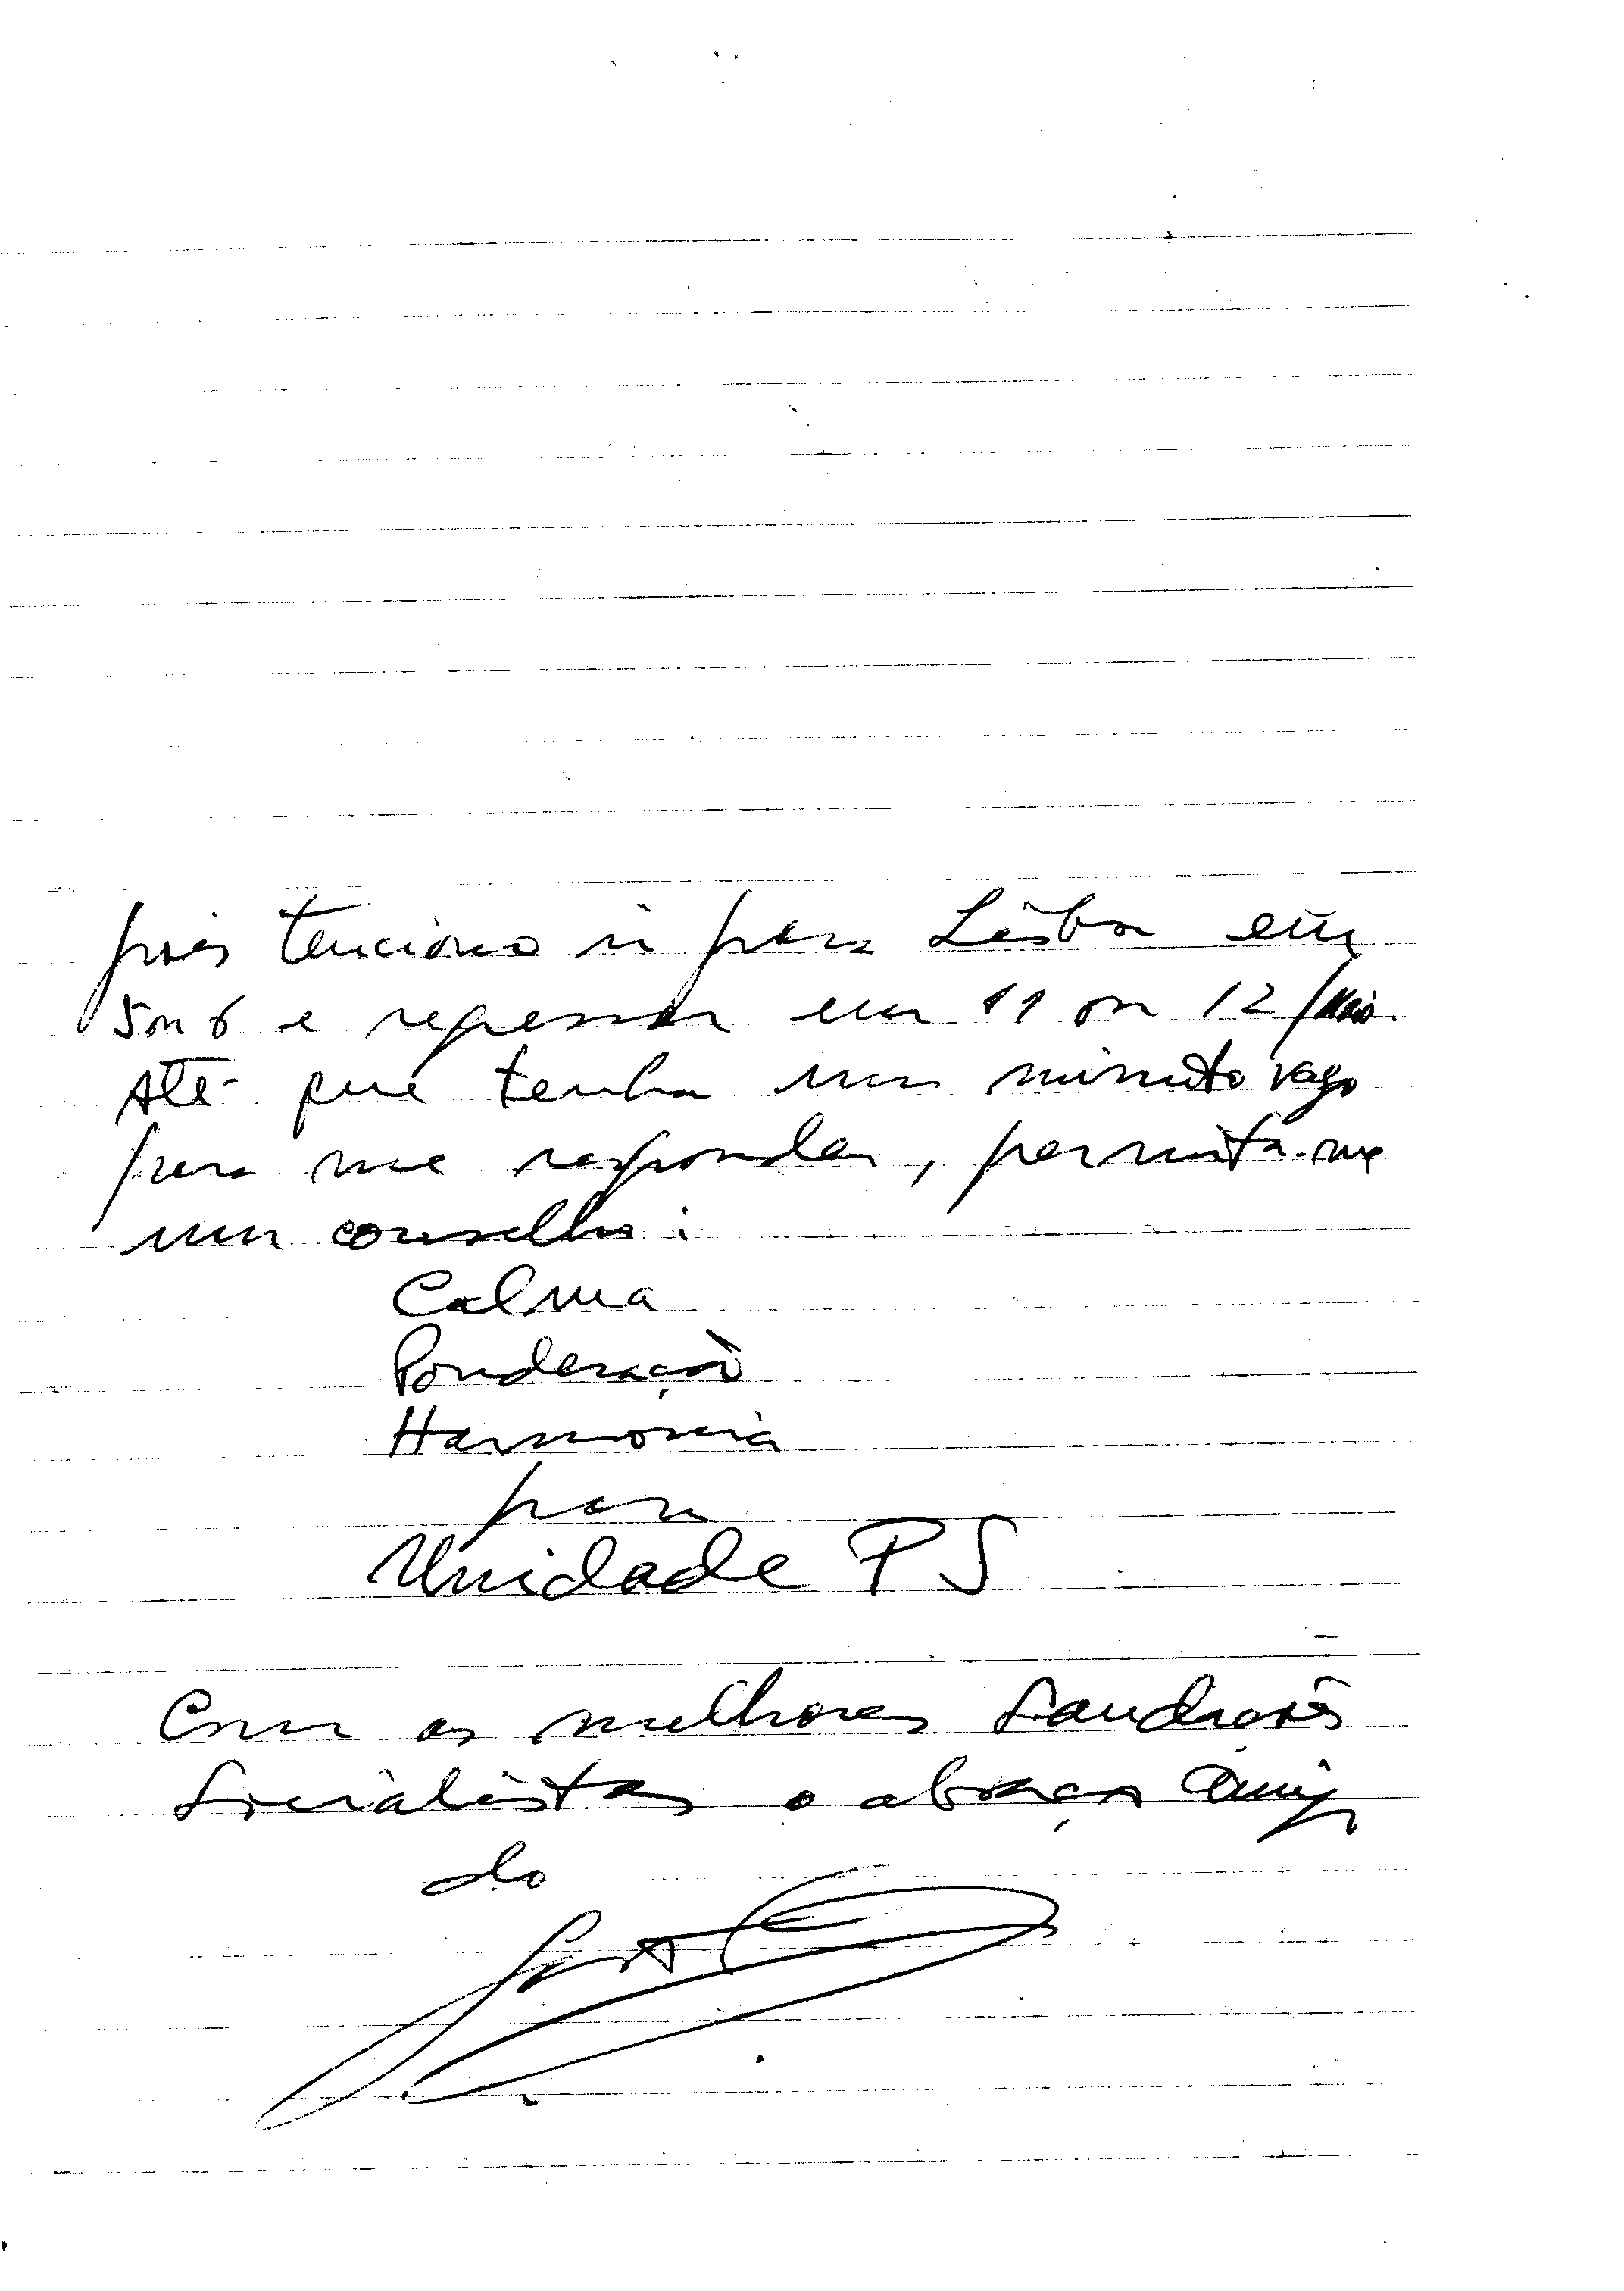 pois tenciono ir para Lisboa em
5 ou 6 e regressar em 11 ou 12/Maio.
Até que tenha um minuto vago
para me responder, permita-me
um conselho:
Calma
Ponderação
Harmonia
para
Unidade PS
Com as melhores Saudações
Socialistas o abraço amigo
do